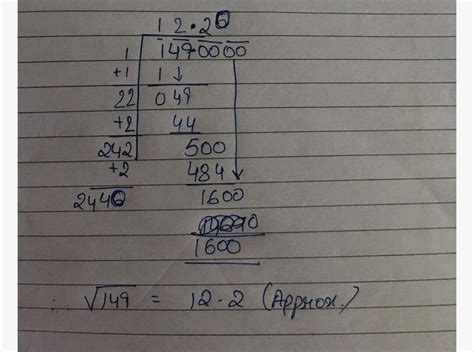 12.20
1 149.0000
+1 1↓
22 049
+2 44
242 500
+2 484
2440 1600
1600
∴ √149 = 12.2 (Approx.)